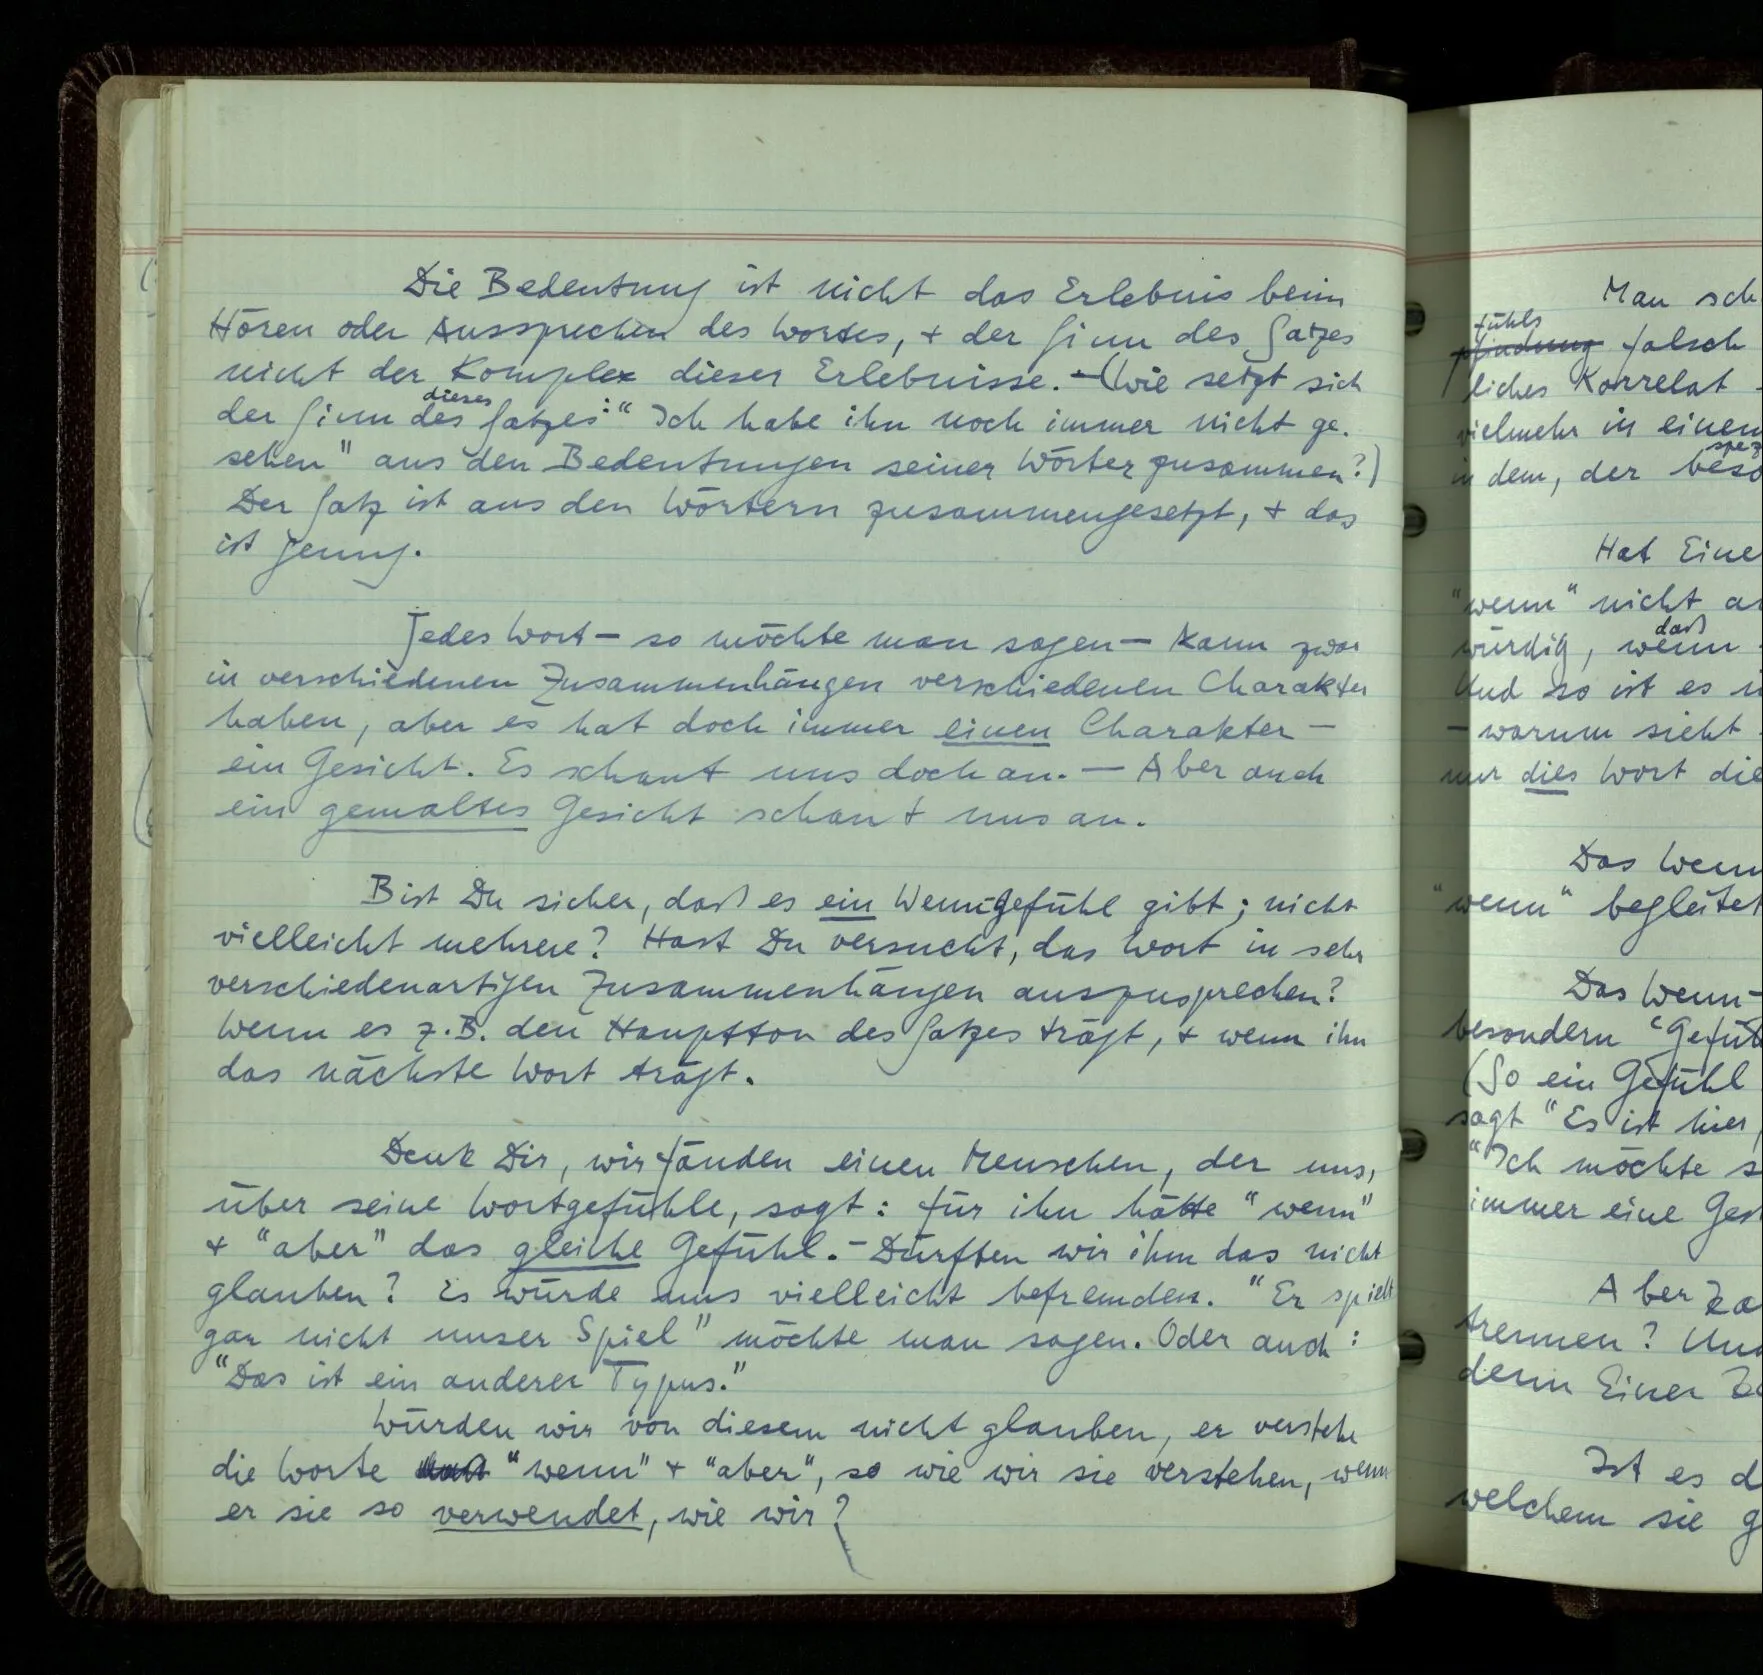 Die Bedeutung ist nicht das Erlebnis beim
Hören oder Aussprechen des Wortes, + der Sinn des Satzes
nicht der Komplex dieser Erlebnisse. – (Wie setzt sich
dieses
der Sinn des Satzes: "Ich habe ihn noch immer nicht ge-
sehen" aus den Bedeutungen seiner Wörter zusammen?)
Der Satz ist aus den Wörtern zusammengesetzt, + das
ist genug.
Jedes Wort – so möchte man sagen – kann zwar
in verschiedenen Zusammenhängen verschiedenen Charakter
haben, aber es hat doch immer einen Charakter –
ein Gesicht. Es schaut uns doch an. – Aber auch
ein gemaltes Gesicht schaut uns an.
Bist Du sicher, daß es ein Wenn-Gefühl gibt; nicht
vielleicht mehrere? Hast Du versucht, das Wort in sehr
verschiedenartigen Zusammenhängen auszusprechen?
Wenn es z.B. den Hauptton des Satzes trägt, + wenn ihn
das nächste Wort trägt.
Denk Dir, wir fänden einen Menschen, der uns,
über seine Wortgefühle, sagt: für ihn hätte "wenn"
+ "aber" das gleiche Gefühl. – Dürften wir ihm das nicht
glauben? Es würde uns vielleicht befremden. "Er spielt
gar nicht unser Spiel" möchte man sagen. Oder auch:
"Das ist ein anderer Typus."
Würden wir von diesem nicht glauben, er verstehe
die Worte "wenn" + "aber", so wie wir sie verstehen, wenn
er sie so verwendet, wie wir?
Man sch
fühls
falsch
liches Korrelat
vielmehr in einem
spez
in dem, der beso
Hat Eine
"wenn" nicht a
daß
würdig, wenn
Und so ist es
– warum sieht
nur dies Wort die
Das Wenn
"wenn" begleitet
Das Wenn-
besondern "Gefüh
(So ein Gefühl
sagt "Es ist hier
"Ich möchte s
immer eine Ges
Aber ka
trennen? Und
denn Einer
Ist es d
welchem sie g